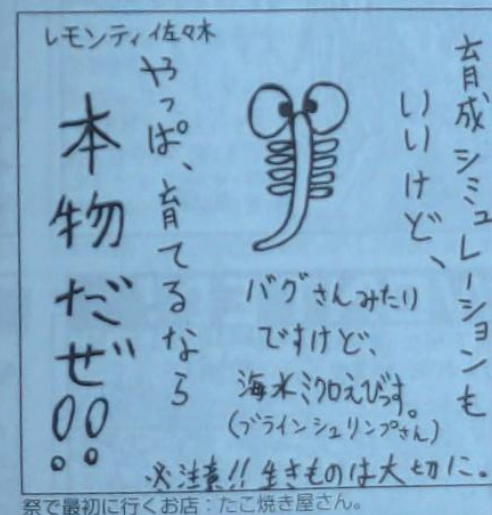 レモンティ佐々木
育成シミュレーションも
いいけど、
やっぱ、育てるなら
本物だぜ!!
バグさんみたり
ですけど、
海水ミクロえびっす。
(ブラインシュリンプさん)
※注意!!生きものは大切に。
祭で最初に行くお店:たこ焼き屋さん。